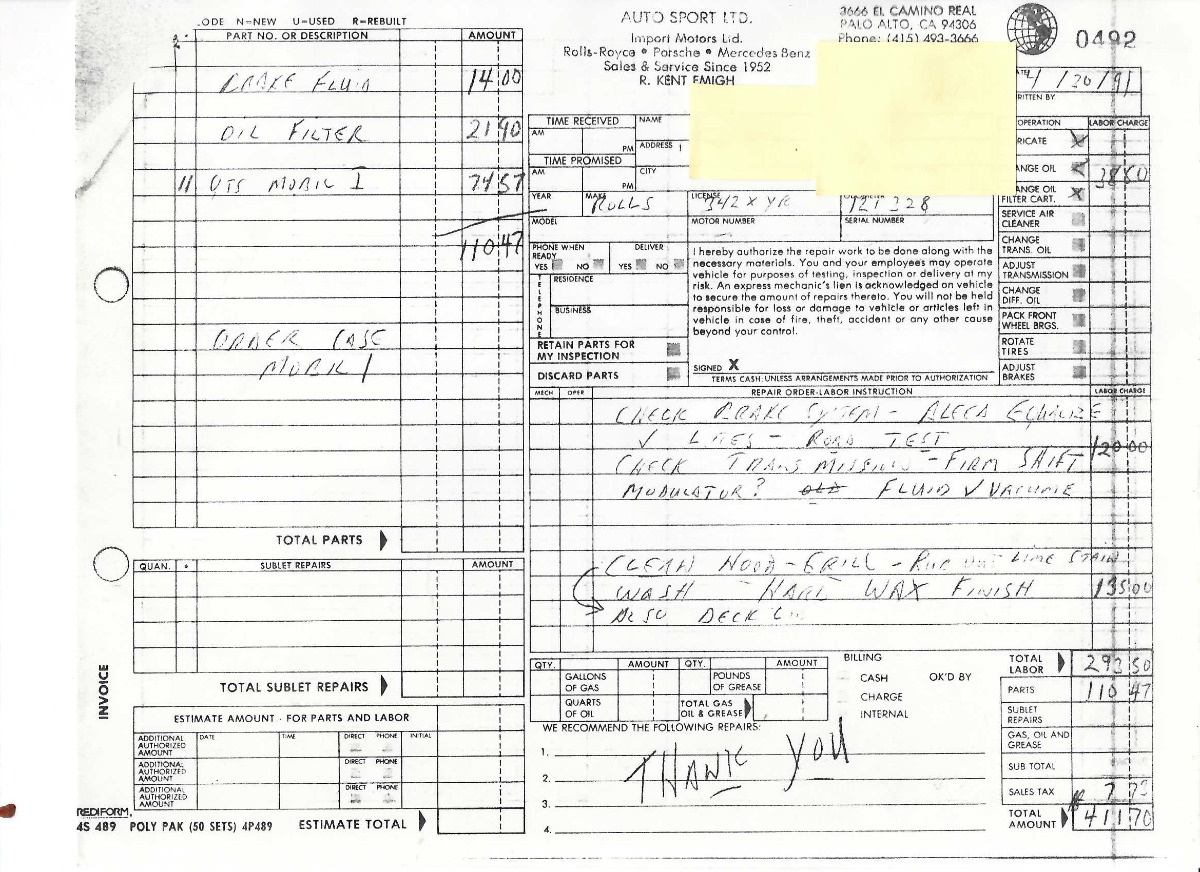 ODE N=NEW U=USED R=REBUILT
PART NO. OR DESCRIPTION AMOUNT
BRAKE FLUID 14 00
OIL FILTER 21 90
11 QTS MOBIL 1 74 57
110 47
ORDER CASE
MOBIL 1
TOTAL PARTS
QUAN. SUBLET REPAIRS AMOUNT
TOTAL SUBLET REPAIRS
ESTIMATE AMOUNT - FOR PARTS AND LABOR
ADDITIONAL AUTHORIZED AMOUNT DATE TIME DIRECT PHONE INITIAL
ADDITIONAL AUTHORIZED AMOUNT DIRECT PHONE
ADDITIONAL AUTHORIZED AMOUNT DIRECT PHONE
ESTIMATE TOTAL
INVOICE
REDIFORM.
4S 489 POLY PAK (50 SETS) 4P489
AUTO SPORT LTD.
Import Motors Ltd.
Rolls-Royce • Porsche • Mercedes Benz
Sales & Service Since 1952
R. KENT EMIGH
3666 EL CAMINO REAL
PALO ALTO, CA 94306
Phone: (415) 493-3666
0492
RITTEN BY
TIME RECEIVED NAME
AM PM ADDRESS
TIME PROMISED
AM PM CITY
YEAR MAKE ROLLS LICENSE 342 XYR 121 328
MODEL MOTOR NUMBER SERIAL NUMBER
PHONE WHEN READY DELIVER
YES NO YES NO
TELEPHONE
RESIDENCE
BUSINESS
RETAIN PARTS FOR
MY INSPECTION
DISCARD PARTS
I hereby authorize the repair work to be done along with the
necessary materials. You and your employees may operate
vehicle for purposes of testing, inspection or delivery at my
risk. An express mechanic's lien is acknowledged on vehicle
to secure the amount of repairs thereto. You will not be held
responsible for loss or damage to vehicle or articles left in
vehicle in case of fire, theft, accident or any other cause
beyond your control.
SIGNED X
TERMS CASH: UNLESS ARRANGEMENTS MADE PRIOR TO AUTHORIZATION
OPERATION LABOR CHARGE
RICATE X
ANGE OIL X 38 50
ANGE OIL FILTER CART. X
SERVICE AIR CLEANER
CHANGE TRANS. OIL
ADJUST TRANSMISSION
CHANGE DIFF. OIL
PACK FRONT WHEEL BRGS.
ROTATE TIRES
ADJUST BRAKES
MECH OPER REPAIR ORDER-LABOR INSTRUCTION LABOR CHARGE
CHECK BRAKE SYSTEM - BLEED EQUALIZE
✓ LITES - ROAD TEST 120 00
CHECK TRANSMISSION - FIRM SHIFT
MODULATOR? OLD FLUID ✓ VACUUME
CLEAN HOOD - GRILL - RUB OUT LIME STAIN
WASH HARD WAX FINISH 135 00
ALSO DECK
QTY. AMOUNT QTY. AMOUNT
GALLONS OF GAS POUNDS OF GREASE
QUARTS OF OIL TOTAL GAS OIL & GREASE
BILLING
CASH OK'D BY
CHARGE
INTERNAL
WE RECOMMEND THE FOLLOWING REPAIRS:
1.
2.
3.
4.
THANK YOU
TOTAL LABOR 293 50
PARTS 110 47
SUBLET REPAIRS
GAS, OIL AND GREASE
SUB TOTAL
SALES TAX 7 73
TOTAL AMOUNT 411 70